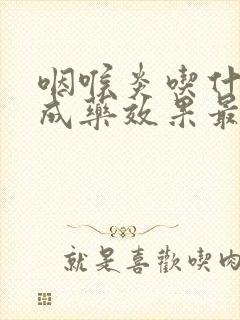 咽喉炎喫什
成藥效果最
就是喜歡喫肉